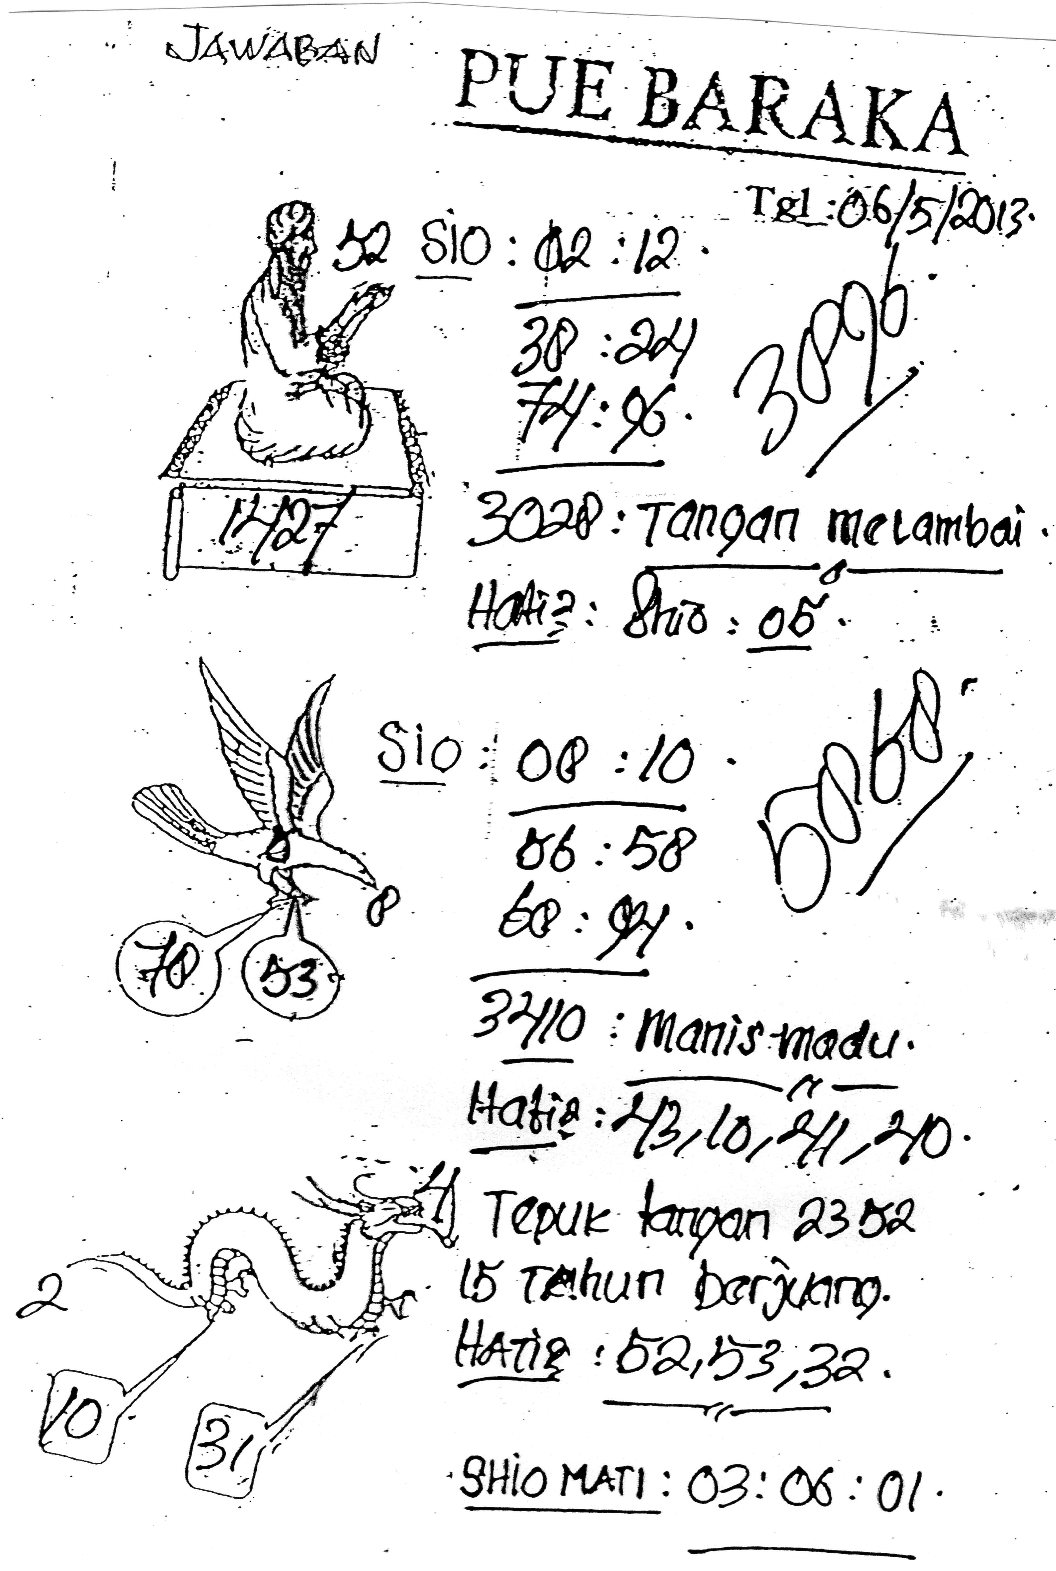 JAWABAN
PUE BARAKA
Tgl : 06/5/2013.
52 SIO : 02 : 12.
38 : 24
74 : 96.
3896
1427
3028 : Tangan melambai.
Hati2 : Shio : 05.
SIO : 08 : 10.
06 : 58
68 : 94.
5868
8
78 53
3410 : Manis madu.
Hati2 : 43, 10, 41, 40.
4 Tepuk tangan 2352
2 15 Tahun berjuang.
HATI2 : 52, 53, 32.
10 31
SHIO MATI : 03 : 06 : 01.